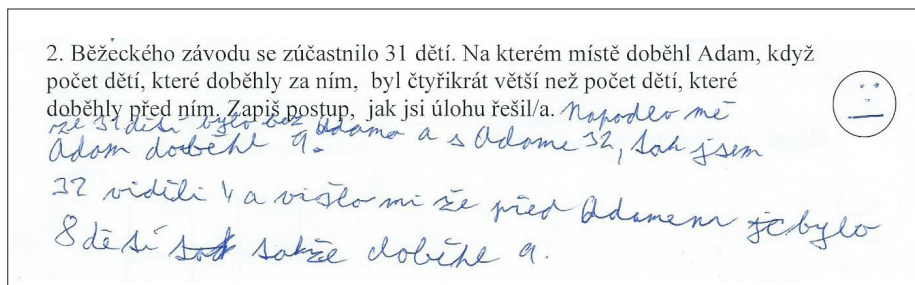 2. Běžeckého závodu se zúčastnilo 31 dětí. Na kterém místě doběhl Adam, když
počet dětí, které doběhly za ním, byl čtyřikrát větší než počet dětí, které
doběhly před ním. Zapiš postup, jak jsi úlohu řešil/a. Napodlo mě
že 31 dětí bylo bez Adama a s Adame 32, tak jsem
Adam doběhl 9.
32 vidělila 4 a višlo mi že před Adamem je bylo
8 dětí takže doběhl 9.